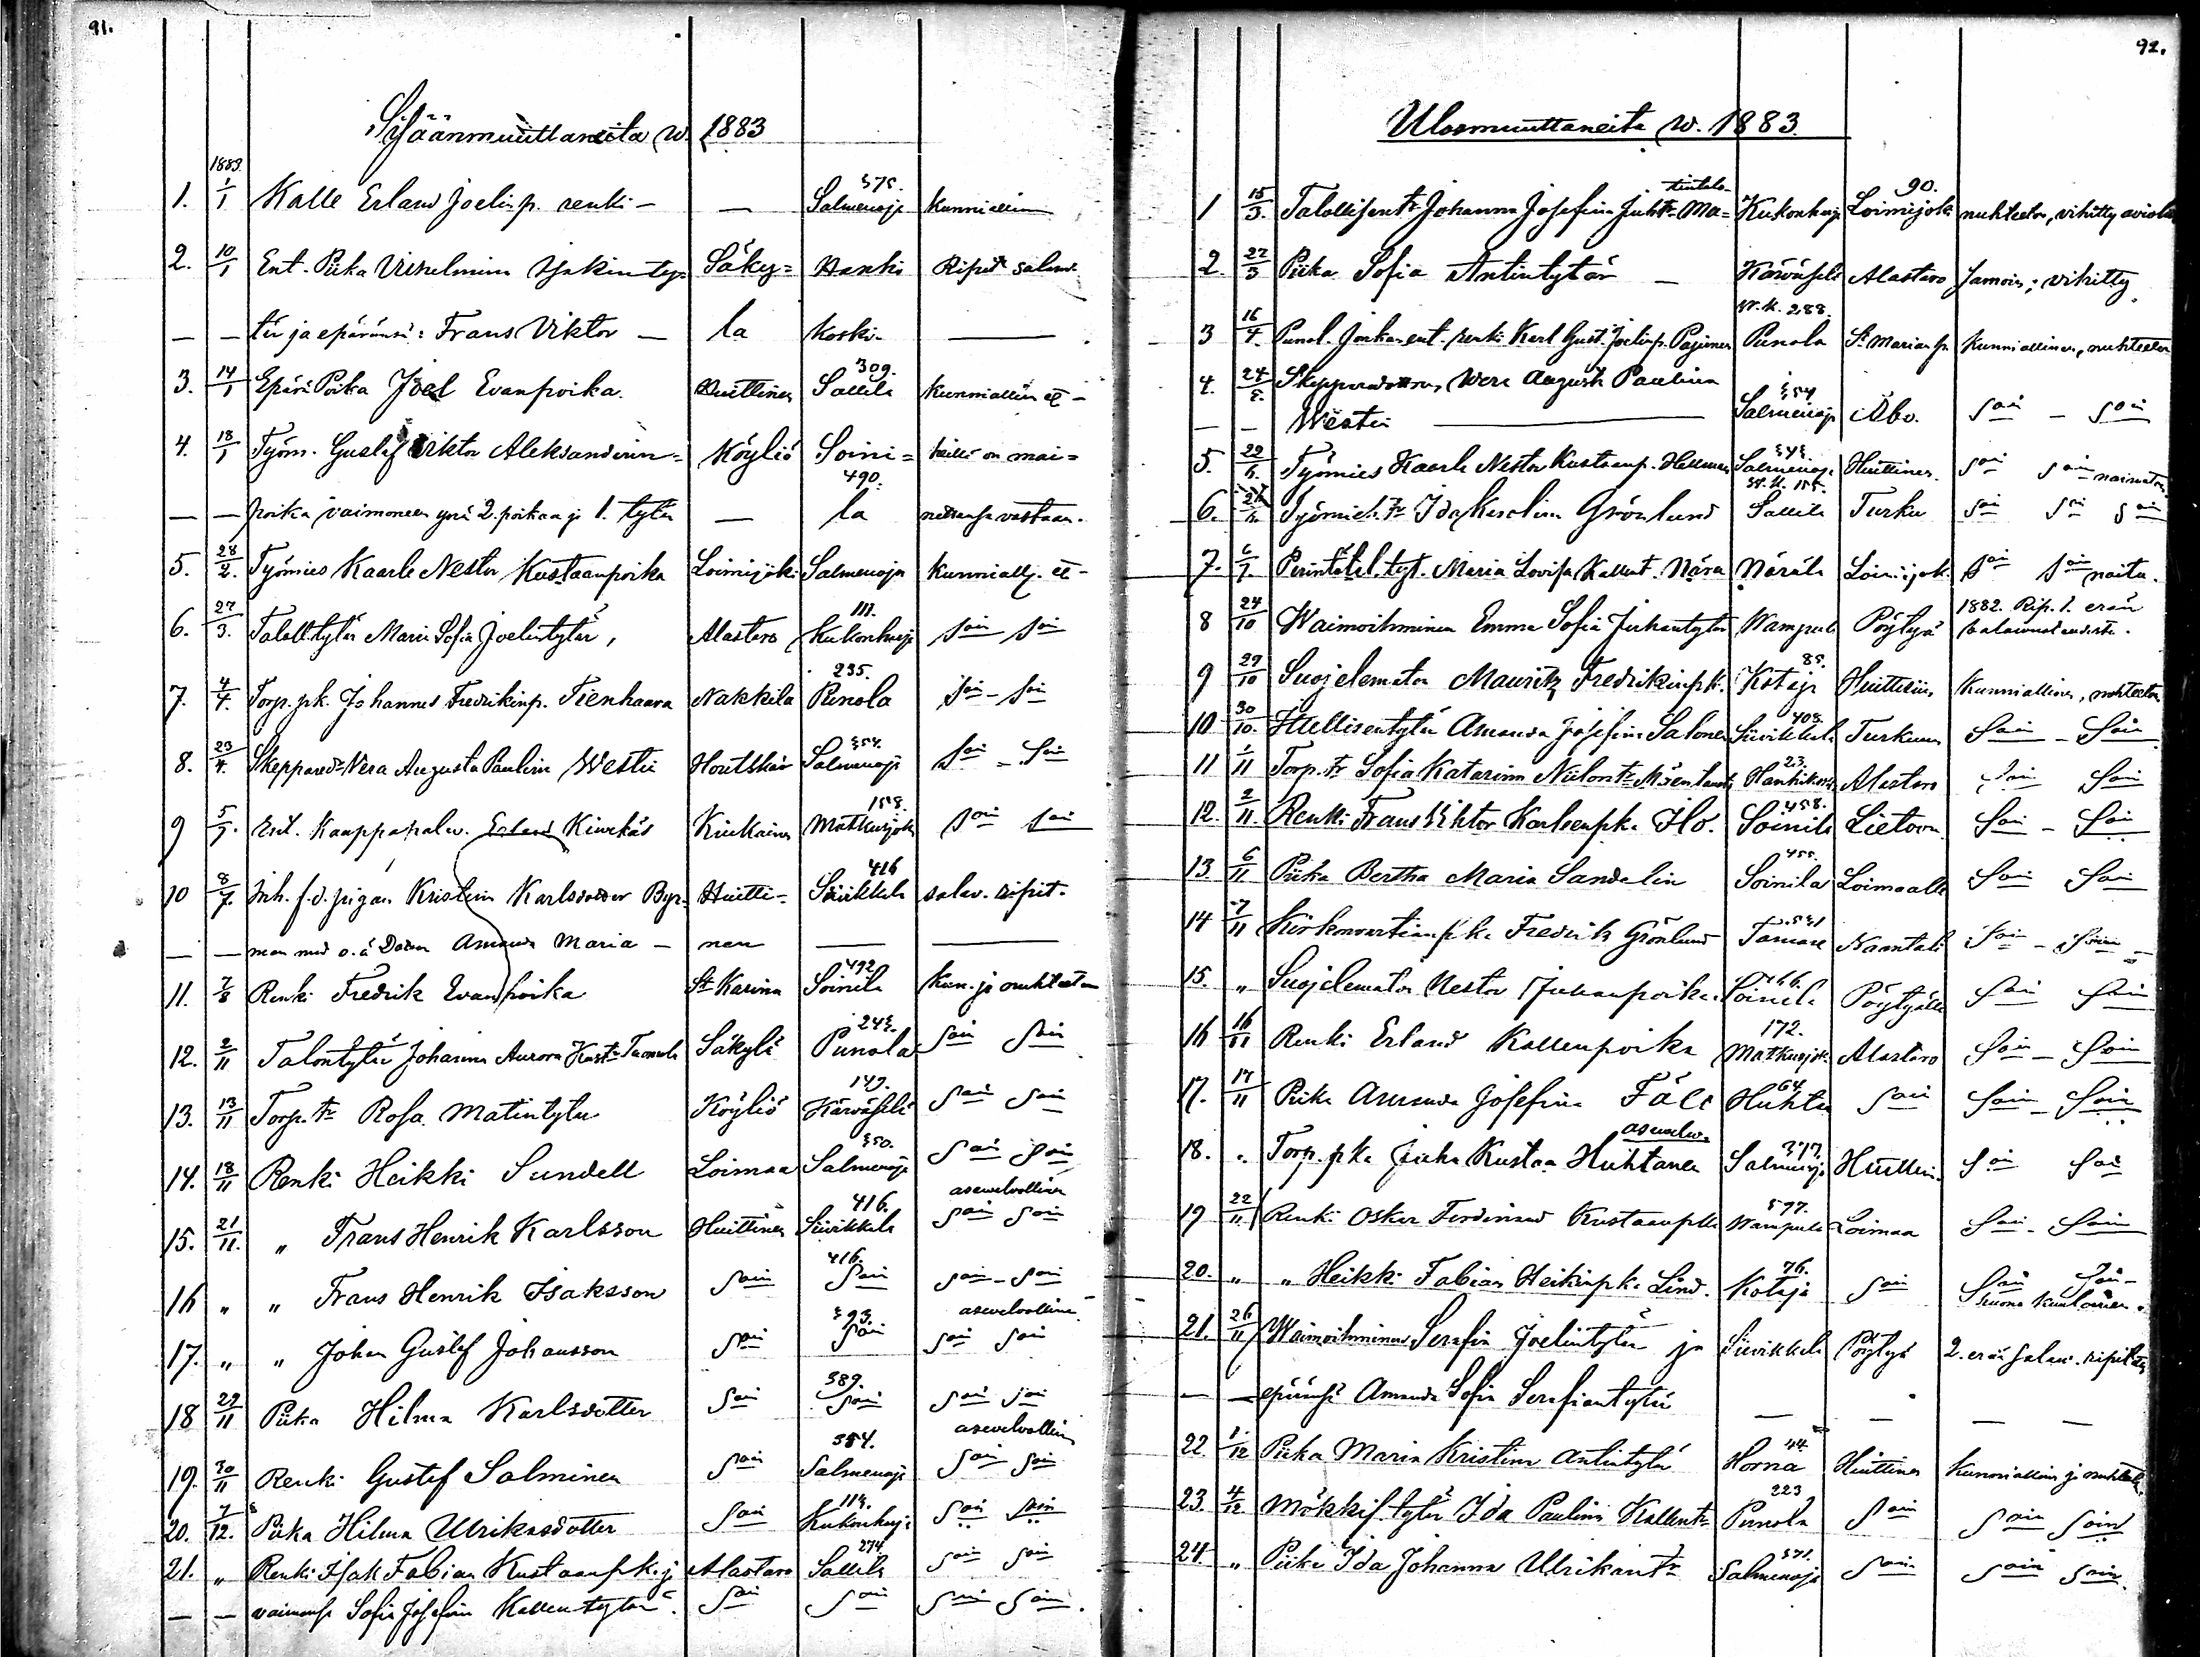 91.
Sisäänmuuttaneita w. 1883
1883.
1. 1/1 Kalle Erland Joelinp. renki — — 575. Salmenoja kunniallinen
2. 10/1 Ent. Piika Vilhelmina Isakinty= Säky= Hanhi Ripit. salavu.
— — tär ja epäräinsä: Frans Viktor — la koski. —
3. 14/1 Epärä Poika Joel Evanpoika. Huittinen 309. Sallila kunniallinen etc —
4. 18/1 Työm. Gustaf Viktor Aleksanderin= Köyliö Soini= heillä on mai=
— — poika vaimoneen ynnä 2. poikaa ja 1. tytär — 490. la neensa vastaan.
5. 28/2. Työmies Kaarle Nestor Kustaanpoika Loimijoki Salmenoja kunniallj. etc —
6. 27/3. Taloll. tytär Maria Sofia Joelintytär, Alastaro 111. Kukonharja soin soin
7. 4/4. Torp. pk. Johannes Fredrikinp. Tienhaara Nakkila 235. Punola soin — soin
8. 23/4. Skeppared:r Vera Augusta Paulina Westin Houtskär 554. Salmenoja soin — soin
9 5/7. Ent. Kauppapalv. Erland Kiwekäs Kiukainen 158. Matkusjoki soin soin
10 8/7. Inh. f.d. pigan Kristina Karlsdotter Byr- Huitti- 416 Suikkila salav. ripit.
— — man med o.ä Dotter Amanda Maria — nen — —
11. 7/8 Renki Fredrik Evanpoika St. Karina 492 Soinila kun. ja nuhteeton
12. 2/11 Talontytär Johanna Aurora Kust:r Tuomola Säkylä 243. Punola soin soin
13. 13/11 Torp. tr Rosa Matintytär Köyliö 147. Kärväselä soin soin
14. 18/11 Renki Heikki Sundell Loimaa 550. Salmenoja soin soin
15. 21/11. „ Frans Henrik Karlsson Huittinen 416. Suikkila asevelvollinen soin soin
16 „ „ Frans Henrik Isaksson soin 416. soin soin — soin
17. „ „ Johan Gustaf Johansson soin 393. soin asevelvollinen soin soin
18 29/11 Piika Hilma Karlsdotter soin 389. soin soin soin
19. 30/11 Renki Gustaf Salminen soin 584. Salmenoja asevelvollinen soin soin
20. 7/12. Piika Hilma Ulrikasdotter soin 113. Kukonharja soin soin
21. „ Renki Isak Fabian Kustaanpk. ja Alastaro 274 Sallila soin soin
— — vaimonsa Sofia Josefina Kallentytär. soin soin soin soin.
92.
Ulosmuuttaneita w. 1883.
1 15/3. Talollisen tr Johanna Josefina Juh:tr Ma= tintalo Kukonharja 90. Loimijoki nuhteeton, vihitty aviol.
2. 27/3 Piika Sofia Antintytär — Kärväselä Alastaro samoin; vihitty
3 16/4. Punol. Jonkan ent. renki Karl Gust. Joelinp. Pajunen W. K. 288. Punola St. Marian p. kunniallinen, nuhteeton
4. 24/5. Skepparedottern Wera Augusta Paulina
— — Westin — 554 Salmenoja Åbo. soin — soin
5. 29/6. Työmies Kaarle Nestor Kustaanp. Hellman 548. Salmenoja Huittinen soin soin naimaton
6. Työmieh. tr Ida Karolina Grönlund W. K. 155. Sallila Turku soin soin soin
7. Perintötal. tyt. Maria Lovisa Kallent. Närä Närälä Loimijoki soin soin naitu.
8 24/10 Waimoihminen Emma Sofia Juhantytär Wampula Pöytyä 1882. Rip. 1. erän salavuoteudesta.
9 29/10 Suojelematon Mauritz Fredrikinpk. 85. Kotaja Huittisiin kunniallinen, nuhteeton
10 30/10. Itsellisentytär Amanda Josefina Salonen 403. Suikkila Turkuun soin — soin
11 1/11 Torp. tr Sofia Katarina Niilon:tr 23. Hanhikoski Alastaro soin soin
12. 2/11. Renki Frans Wiktor Karlsenpk. Ilo. 458. Soinila Lietoon soin — soin
13. 6/11 Piika Bertha Maria Sandelin 455. Soinila Loimaalle soin soin
14 7/11 Kirkonvartian pka Fredrik Grönlund 531 Tamare Naantali soin — soin
15. „ Suojelematon Nestor Juhanpoika. 466. Soinila Pöytyälle soin soin
16 16/11 Renki Erland Kallenpoika 172. Matkusjok. Alastaro soin — soin
17. 17/11 Piika Amanda Josefina Fält 64. Huhta soin soin — soin
18. „ Torp. pka Juha Kustaa Huhtanen asevelv. 517. Salmenoja Huittin. soin soin
19 22/11 Renki Oskar Ferdinand Kustaanpka 597. Wampula Loimaa soin — soin
20. „ „ Heikki Fabian Heikinpka Lind. 76. Kotaja soin soin soin — Huono kuuloinen.
21. 26/11 Waimoihminen Serafia Joelintytär ja Suikkila Pöytyä 2. erän salav. ripitetty
— — epäinsä Amanda Sofia Serafiantytär — — — —
22. 1/12 Piika Maria Kristina Antintytär 44 Horna Huittinen kunniallinen ja nuhteet.
23. 4/12 Mökkis. tytär Ida Paulina Kallentr 223 Punola soin soin soin
24. „ Piika Ida Johanna Ulrikantr 571. Salmenoja soin soin soin.